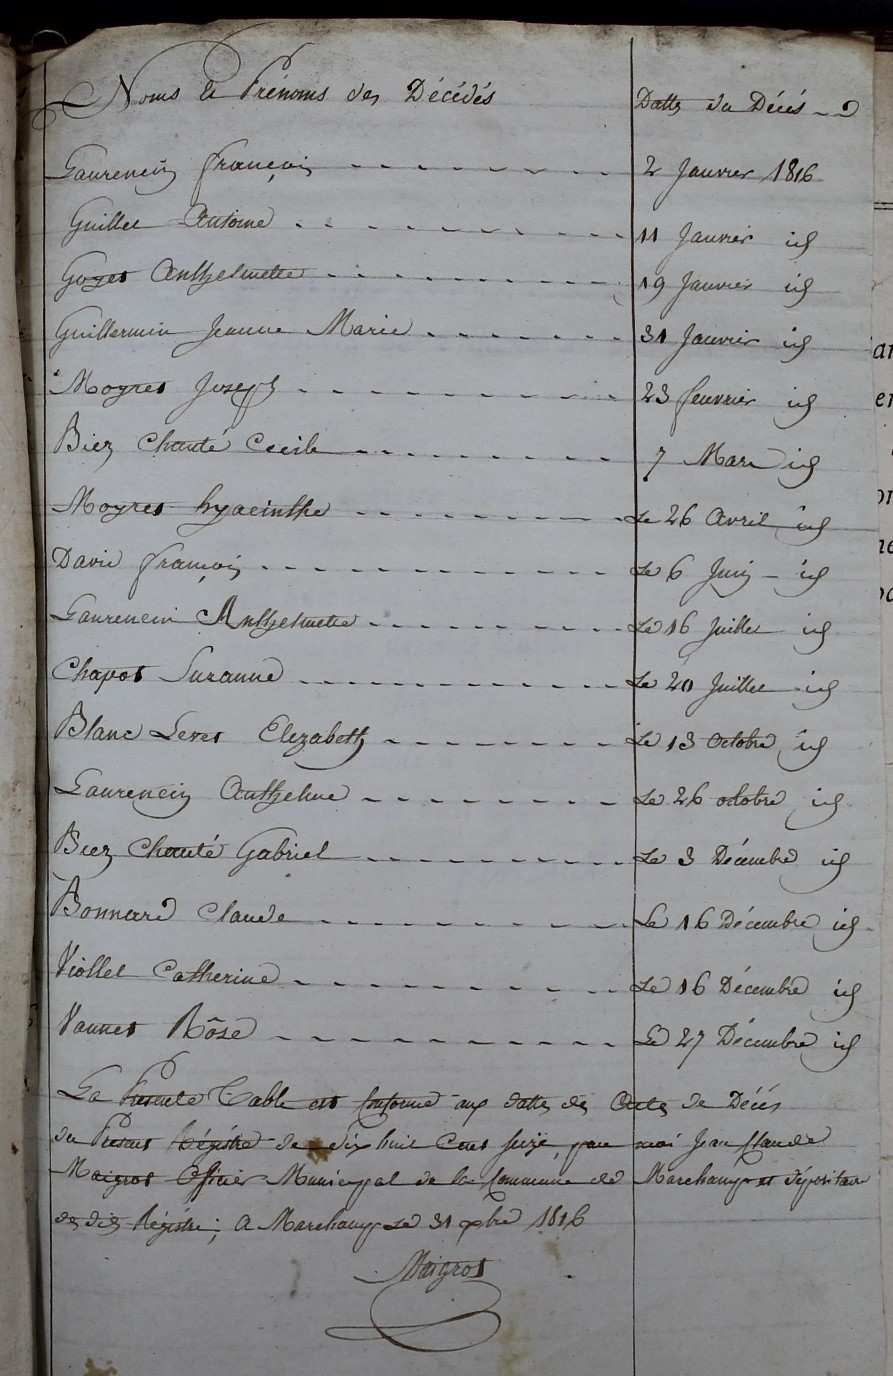 Noms et Prénoms des Décédés Dattes du Décés
Laurencin françois 2 Janvier 1816
Guillet Antoine 11 Janvier id
Goyet Anthelmette 19 Janvier id
Guillermin Jeanne Marie 31 Janvier id
Moyret Joseph 23 fevrier id
Biez Chanté Cecile 7 Mars id
Moyret hyacinthe Le 26 Avril id
David françois Le 6 Juin id
Laurencin Anthelmette Le 16 Juillet id
Chapot Suzanne Le 20 Juillet id
Blanc Elizabeth Le 13 octobre id
Laurencin Anthelme Le 26 octobre id
Biez Chanté Gabriel Le 3 Décembre id
Bonnard Claude Le 16 Décembre id
Viollet Catherine Le 16 Décembre id
Vannet Rôse Le 27 Décembre id
La Presente Table est Conforme aux dattes des Actes de Décés
du Present Régistre de dix huit Cent Seize, par moi Jean Claude
Maigrot Officier Municipal de la Commune de Marchamp et dépositaire
des dits Régistre; A Marchamp Le 31 xbre 1816
Maigrot